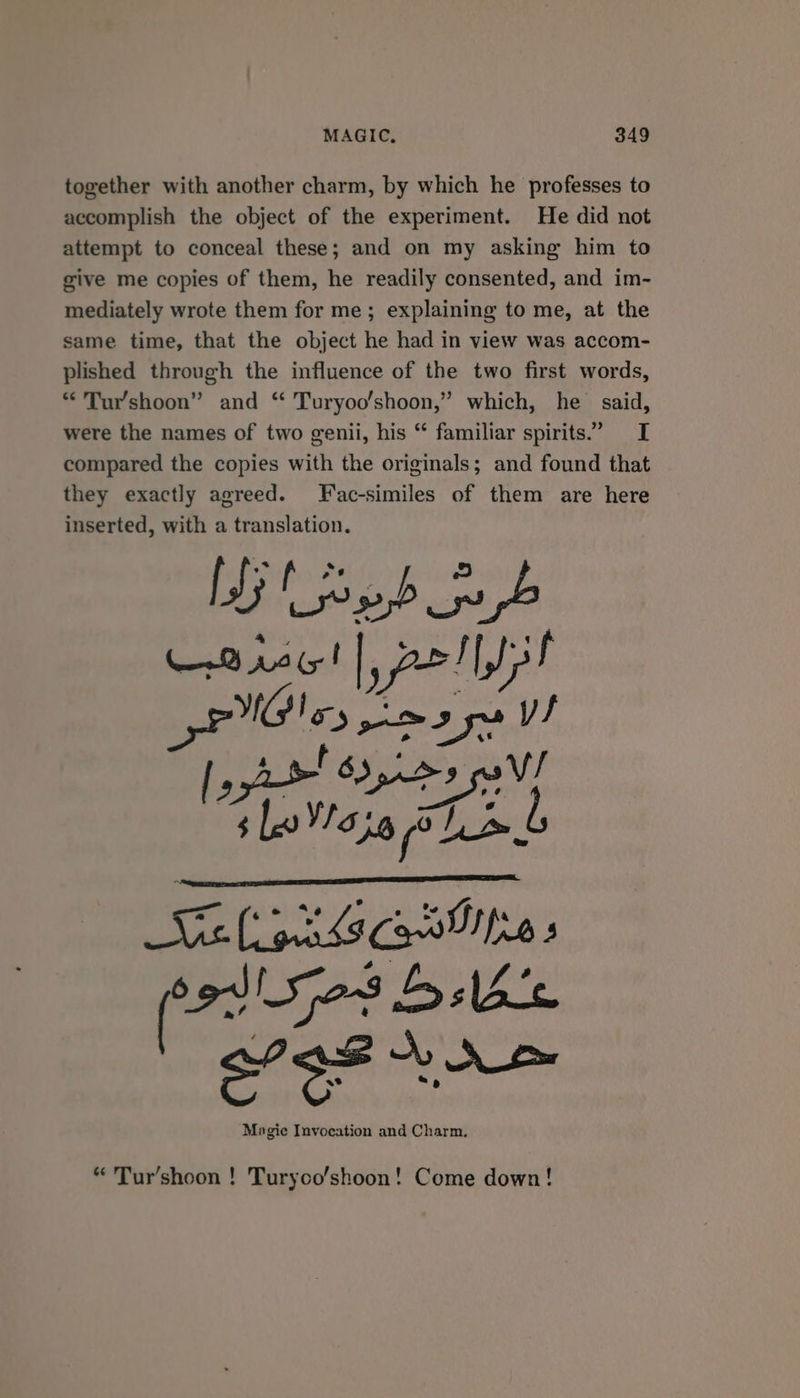 MAGIC. 349
together with another charm, by which he professes to
accomplish the object of the experiment. He did not
attempt to conceal these; and on my asking him to
give me copies of them, he readily consented, and im-
mediately wrote them for me; explaining to me, at the
same time, that the object he had in view was accom-
plished through the influence of the two first words,
“Tur′shoon” and “Turyoo′shoon,” which, he said,
were the names of two genii, his “familiar spirits.” I
compared the copies with the originals; and found that
they exactly agreed. Fac-similes of them are here
inserted, with a translation.
طرش طريوش انزلا
انزلا احضرا اين ذهب
الامير وجنوده اين الاحمر
الامير وجنوده احضروا
يا خدام هذه الاسماء
وهذا الكشف فكشفنا عنك
غطاءك فبصرك اليوم
حديد صحيح
Magic Invocation and Charm.
“Tur′shoon! Turyoo′shoon! Come down!